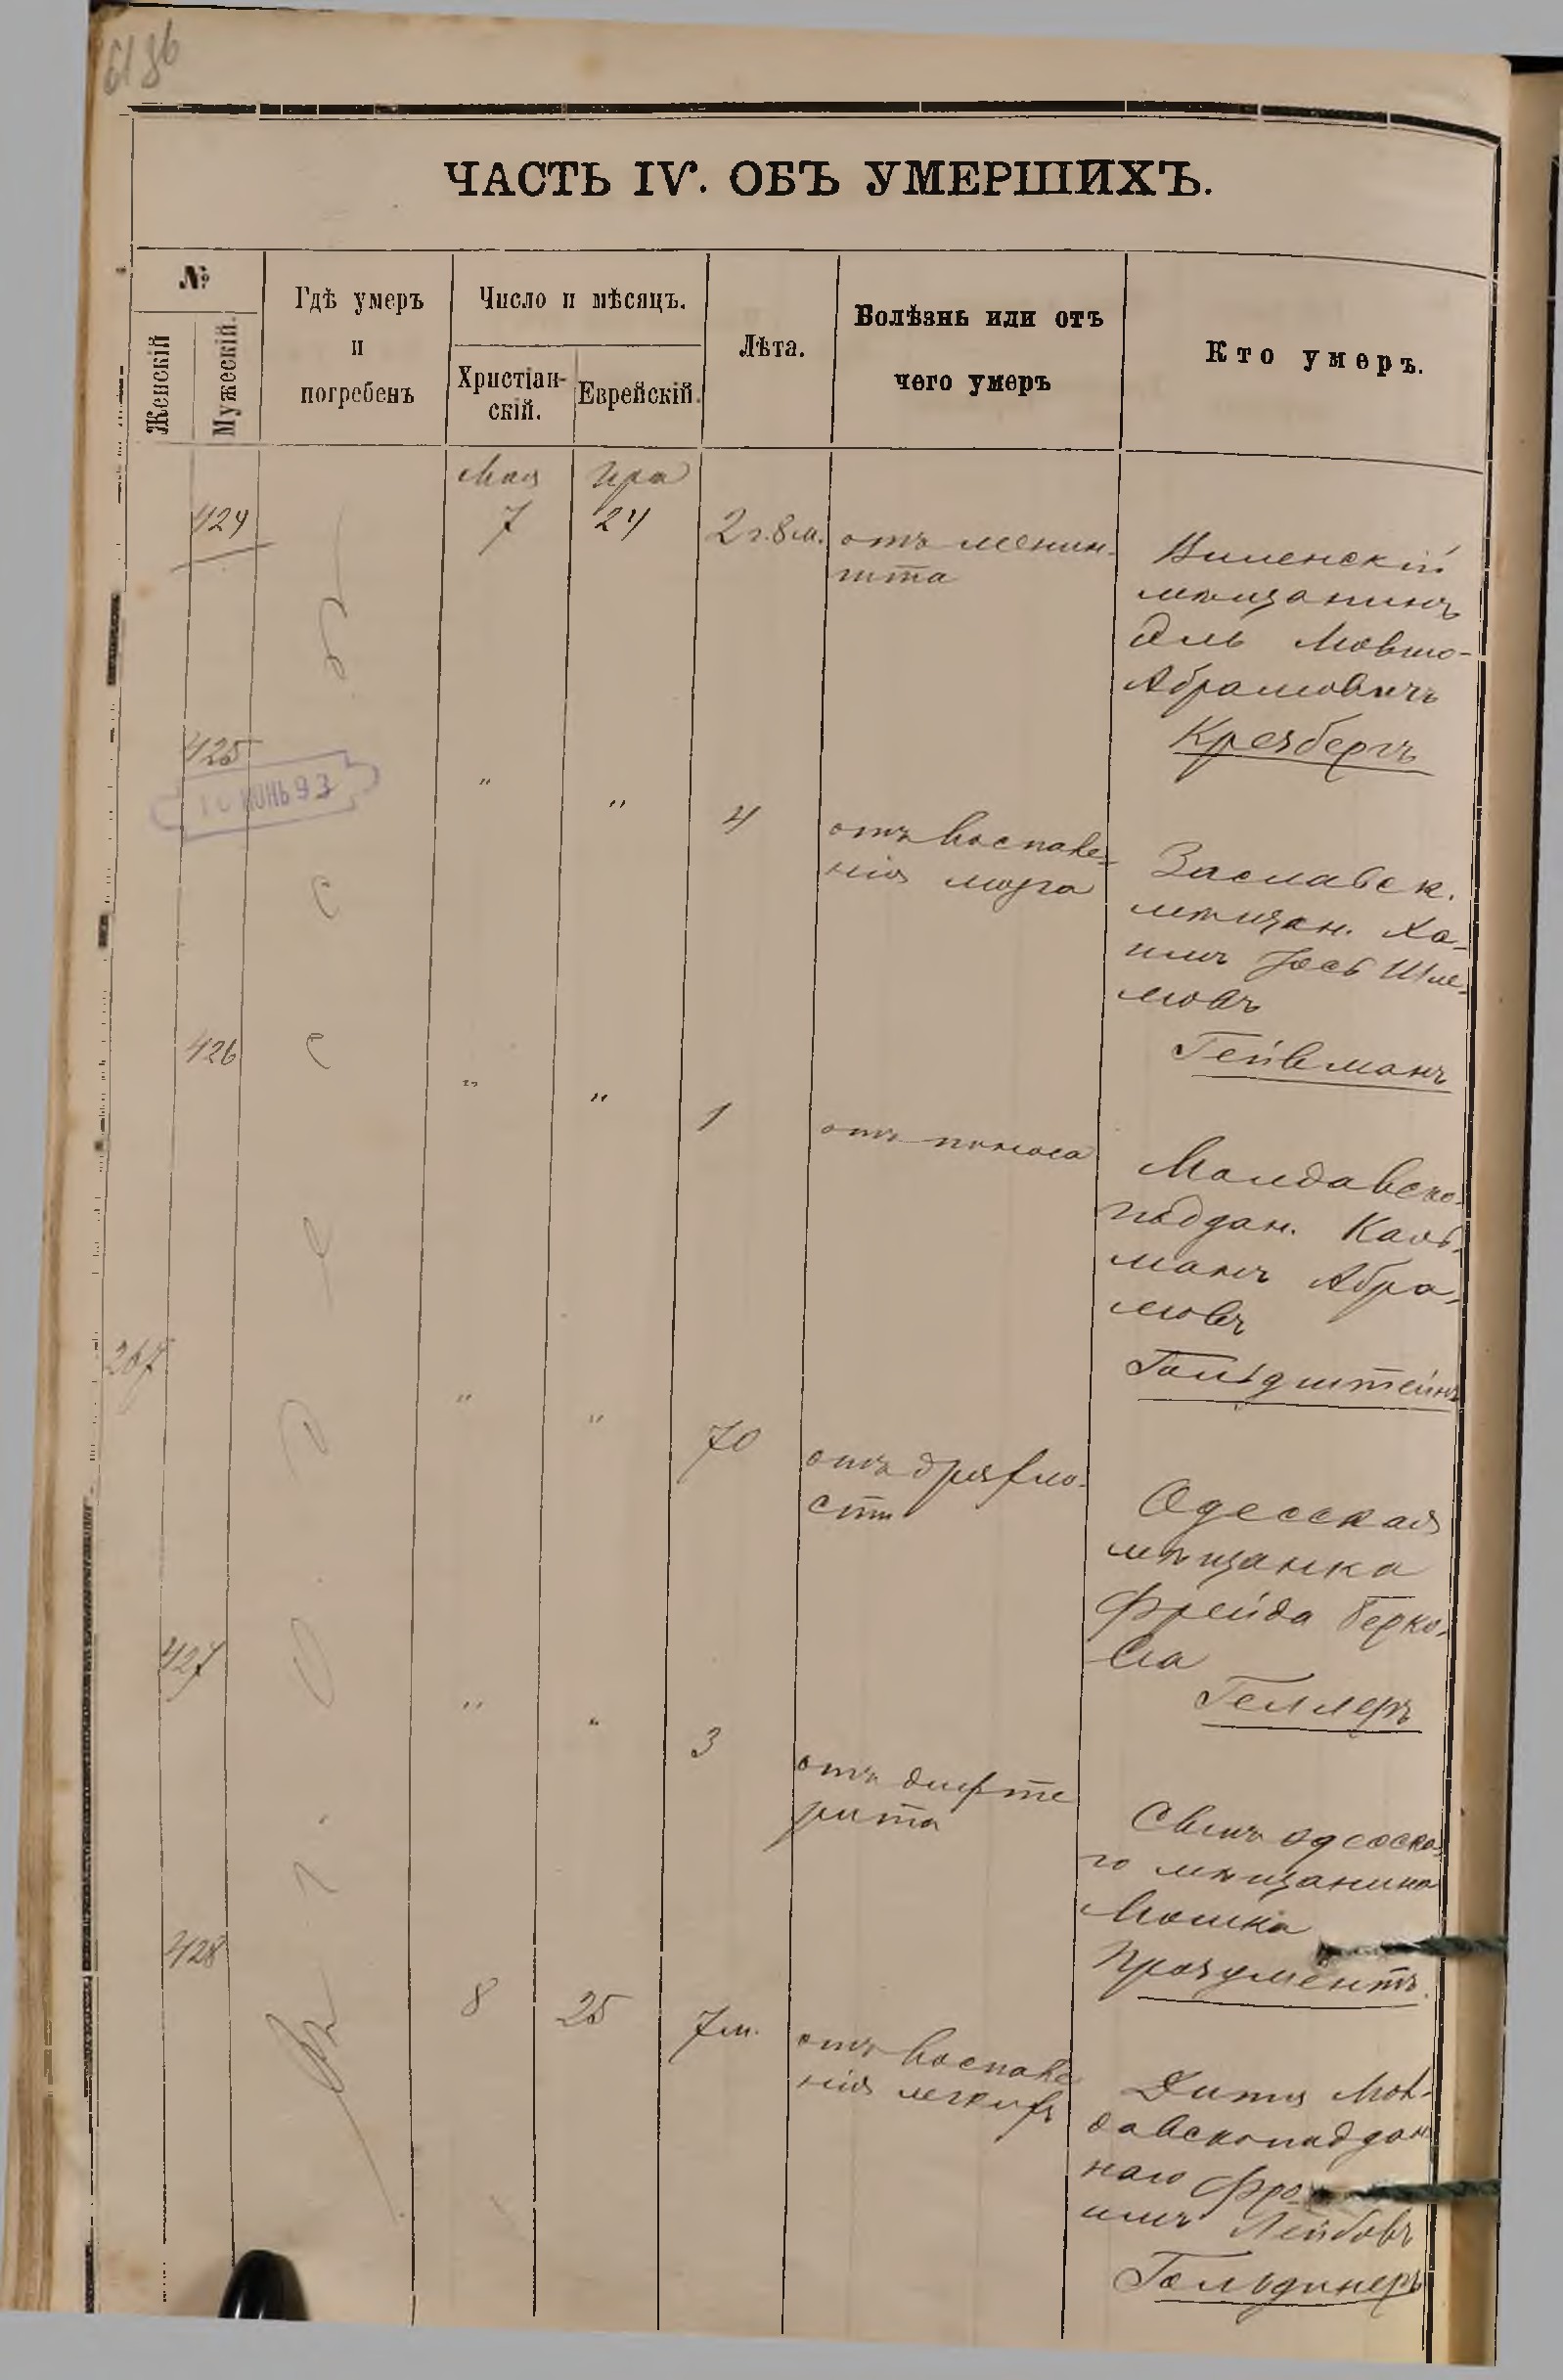 ЧАСТЬ IV. ОБЪ УМЕРШИХЪ.
№
Женскій
Мужескій.
Гдѣ умеръ
и
погребенъ
Число и мѣсяцъ.
Христіан-
скій.
Еврейскій.
Лѣта.
Болѣзнь или отъ
чего умеръ
Кто умеръ.
Мая
Ира
424
7
24
2 г. 8 м.
отъ менин-
гита
Виленскій
мѣщанинъ
Эль Мовшо-
Абрамовичъ
Крезбергъ
425
10 ІЮНЬ 93
"
"
4
отъ воспале-
нія мозга
Заславск.
мѣщан. Ха-
имъ Іось Шле-
мовъ
Гейвманъ
426
"
"
1
отъ поноса
Молдавско-
поддан. Каль-
манъ Абра-
мовъ
Гольдштейнъ
267
"
"
70
отъ дряхло-
сти
Одесская
мѣщанка
Фрейда Берко-
ва
Геллеръ
427
"
"
3
отъ дифте
рита
Сынъ одесска-
го мѣщанина
Мошка
Прозументъ.
428
8
25
7 м.
отъ воспале
нія легкихъ
Дитя Мол-
давскоподдан
наго
имъ Лейбовъ
Гольдинеръ
въ Одессѣ